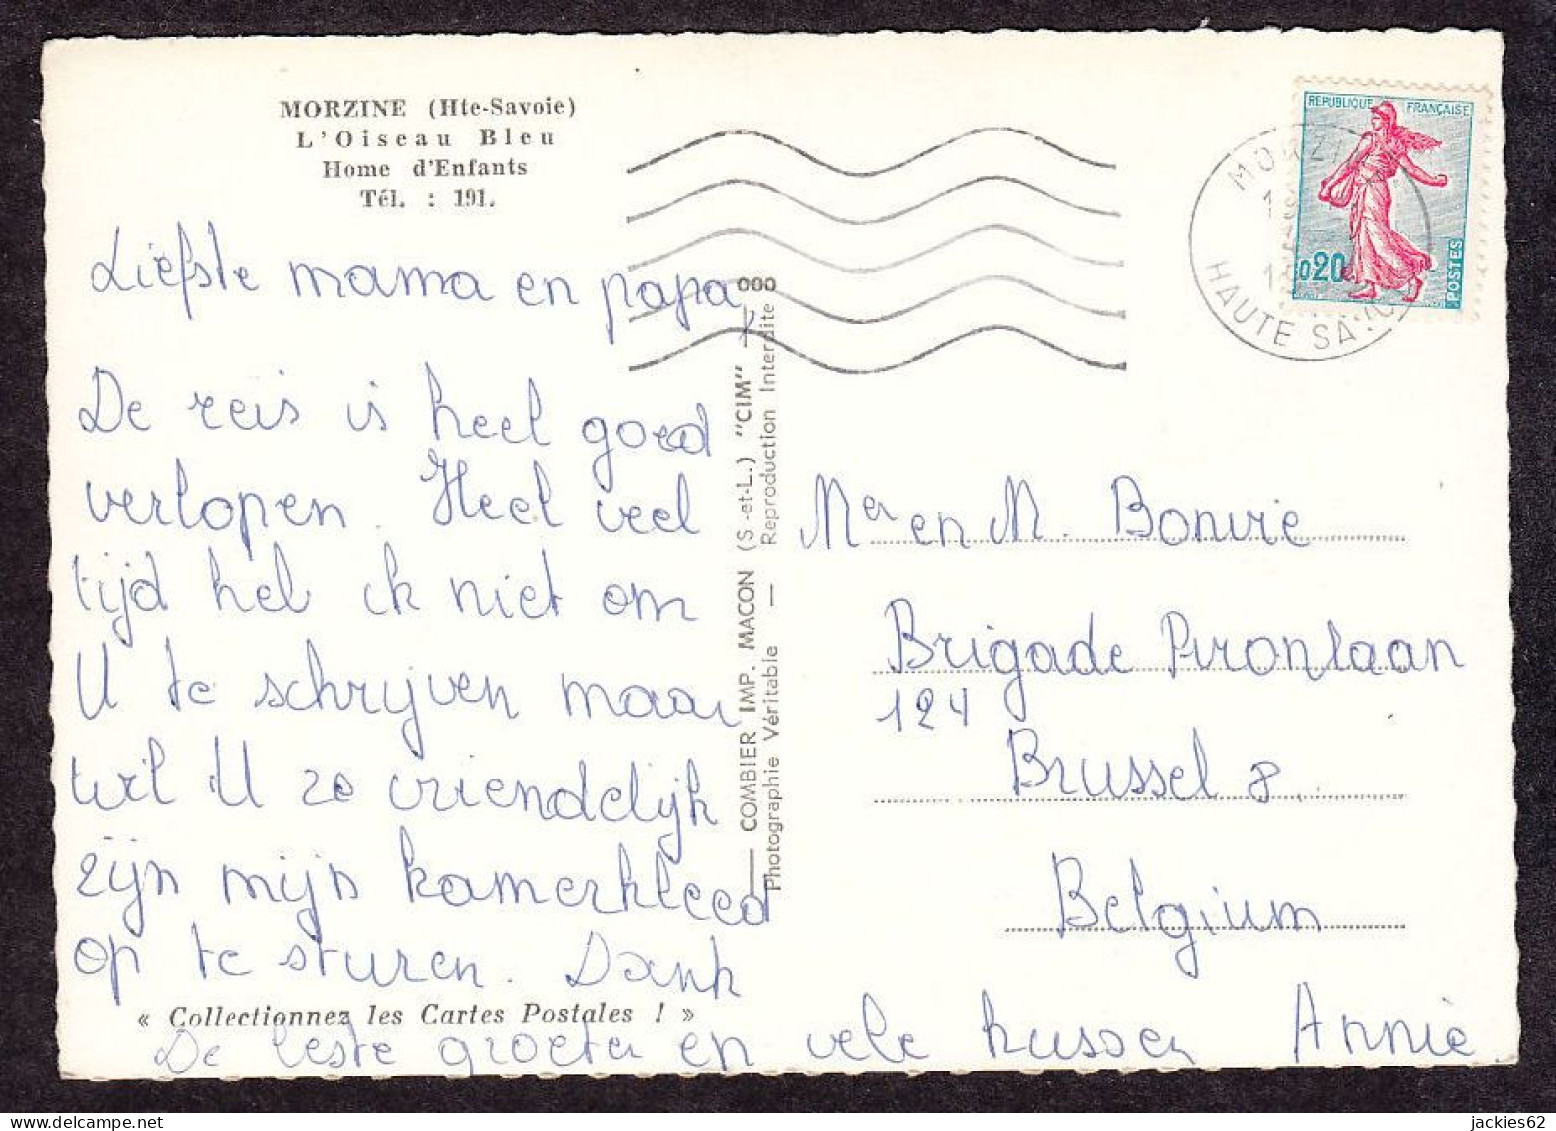 MORZINE (Hte-Savoie)
L'Oiseau Bleu
Home d'Enfants
Tél. : 191.
REPUBLIQUE FRANÇAISE
0,20
POSTES
MORZINE
HAUTE SAVOIE
Liefste mama en papa,
De reis is heel goed
verlopen. Heel veel
tijd heb ik niet om
U te schrijven maar
wil U zo vriendelijk
zijn mijn kamerkleed
op te sturen. Dank
« Collectionnez les Cartes Postales ! »
De beste groeten en vele kussen Annie
COMBIER IMP. MACON (S.-et-L.) "CIM"
Photographie Véritable — Reproduction Interdite
Mer en M. Bonvie
Brigade Pironlaan
124
Brussel 8.
Belgium
jackies62